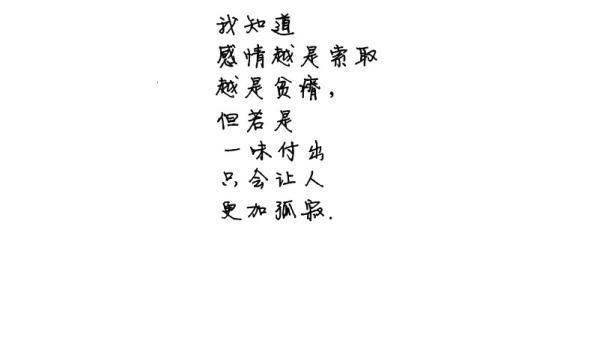 我知道
感情越是索取
越是贫瘠，
但若是
一味付出
只会让人
更加孤寂.